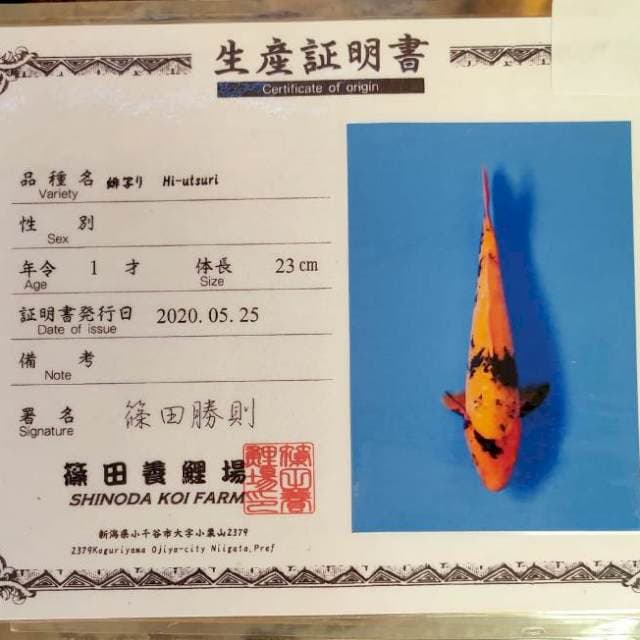 生産証明書
Certificate of origin
品種名 緋写り Hi-utsuri
Variety
性別
Sex
年令 1 才 体長 23 cm
Age Size
証明書発行日 2020.05.25
Date of issue
備考
Note
署名 篠田勝則
Signature
篠田養鯉場
SHINODA KOI FARM
新潟県小千谷市大字小栗山2379
2379Koguriyama Ojiya-city Niigata.Pref